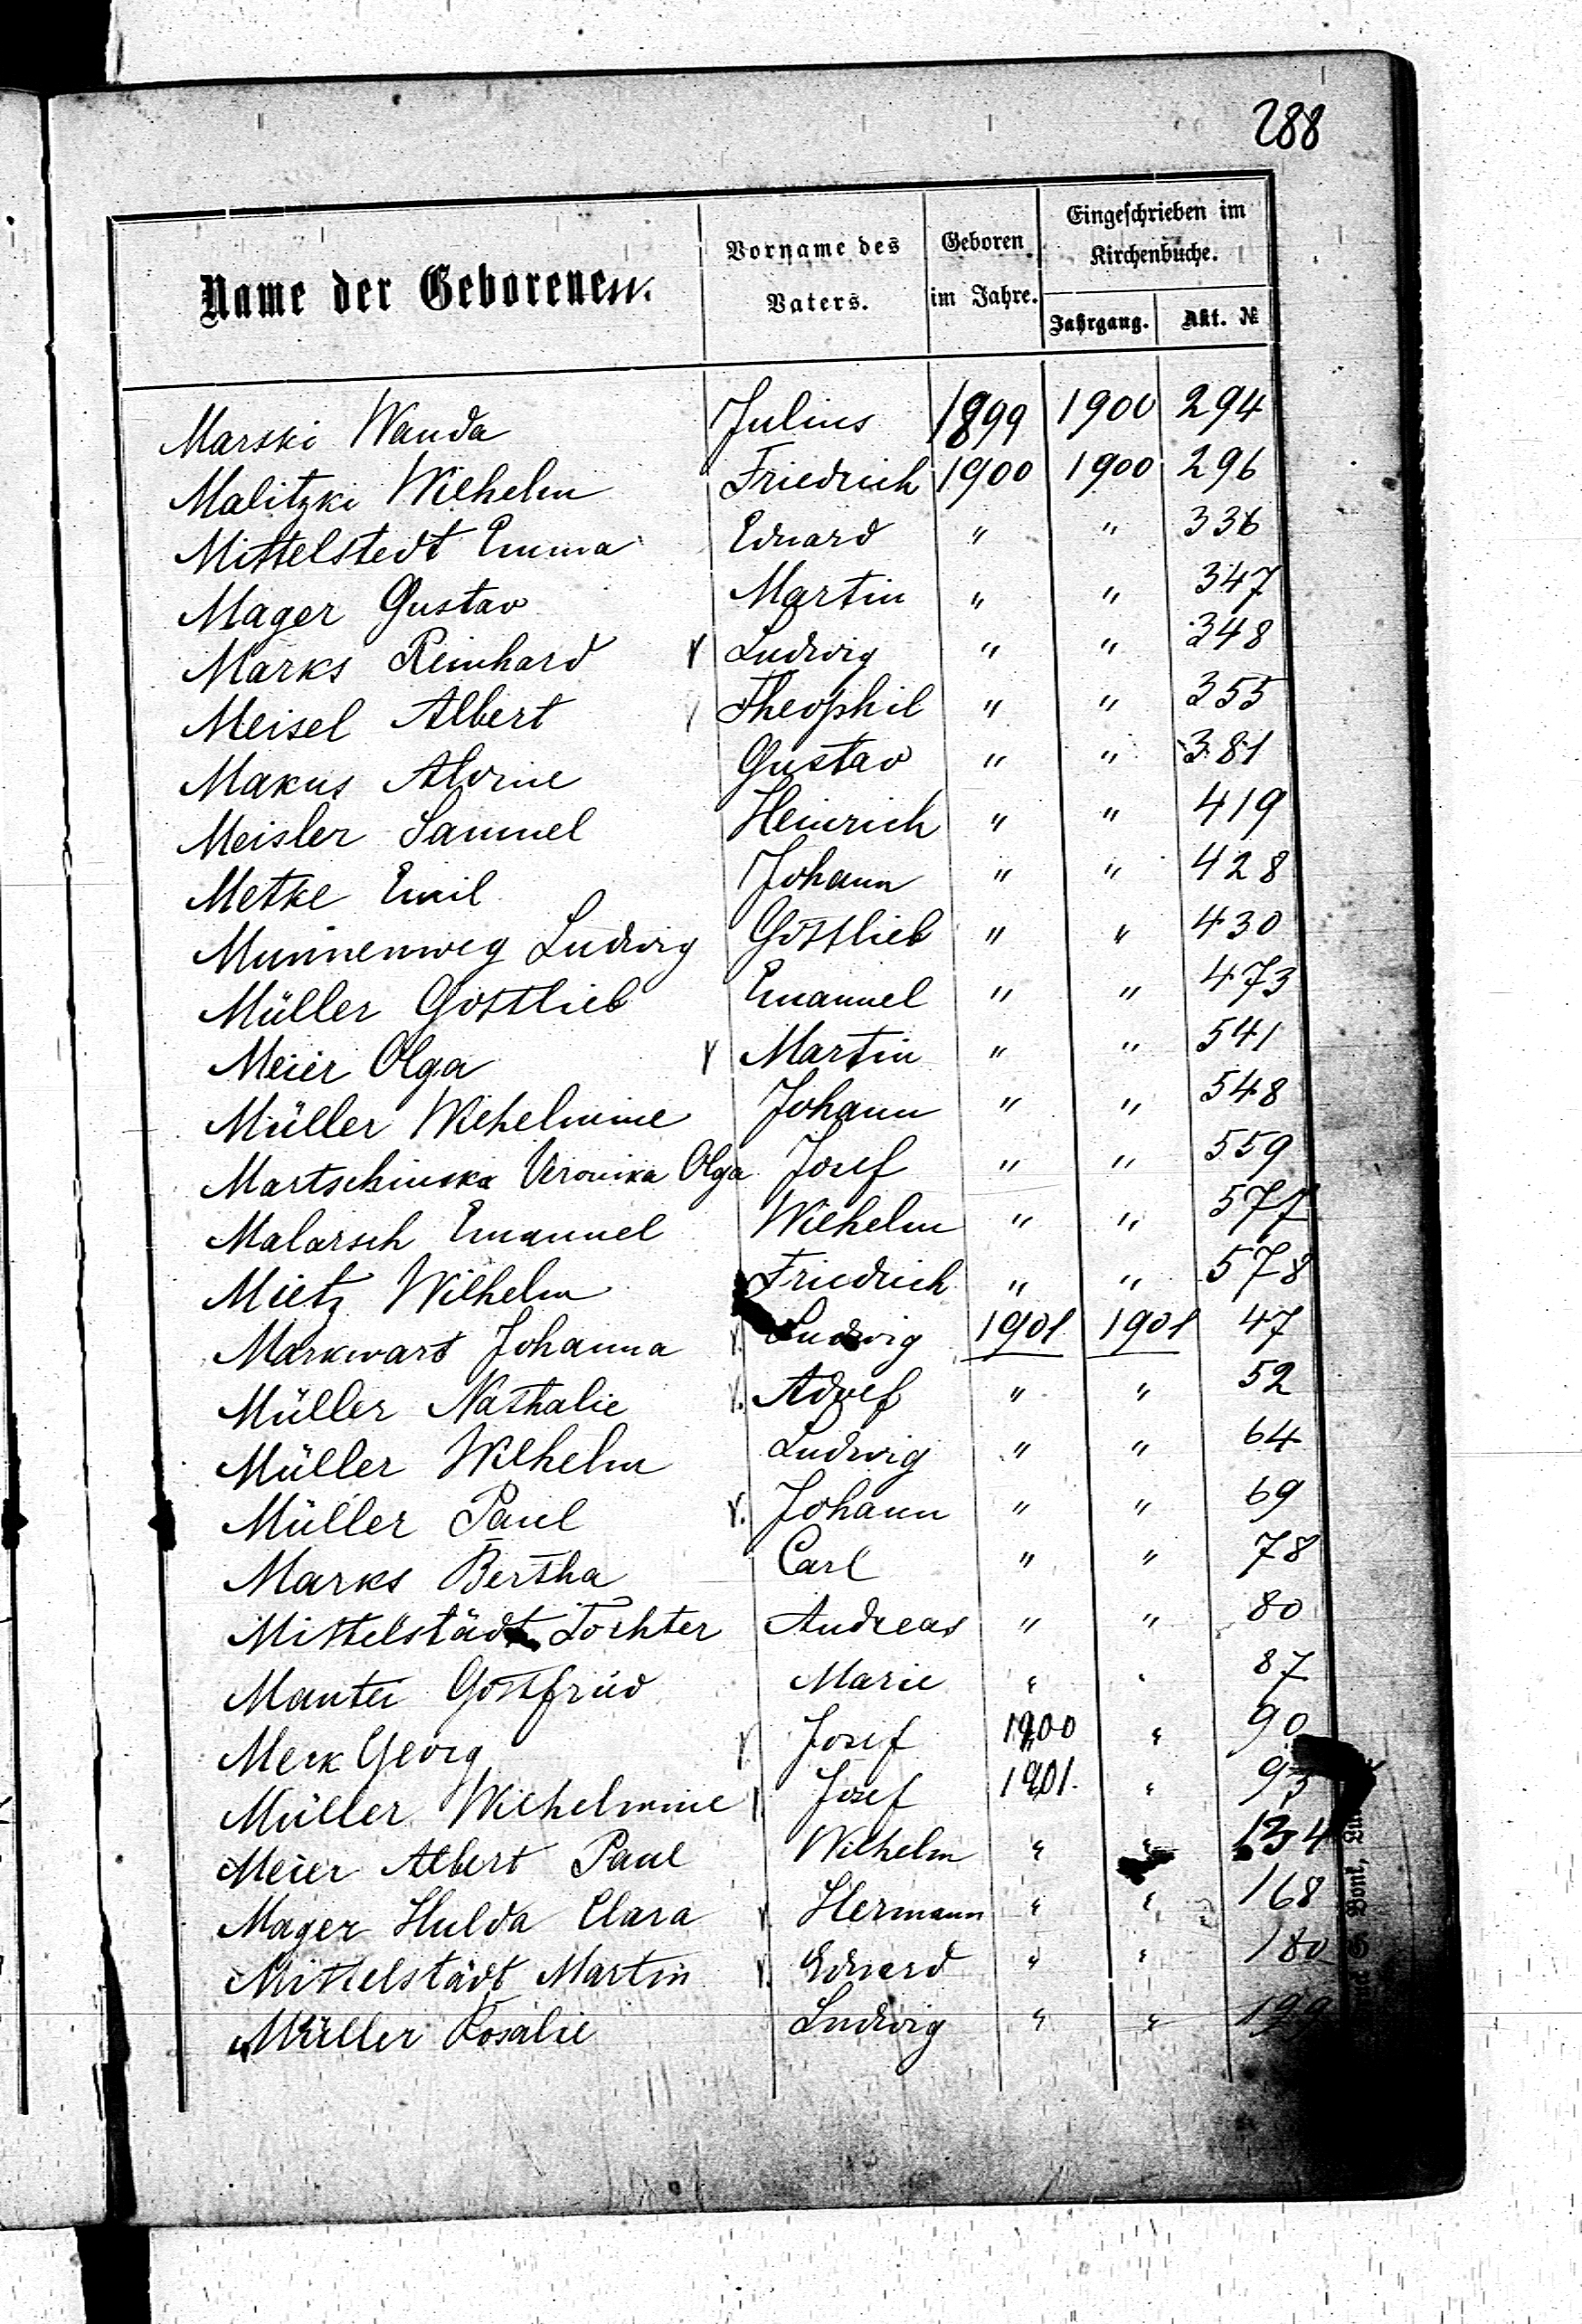 288
Name der Geborenen.
Vorname des Vaters.
Geboren im Jahre.
Eingeschrieben im Kirchenbuche.
Jahrgang.
Akt. №
Marski Wanda Julius 1899 1900 294
Malitzki Wilhelm Friedrich 1900 1900 296
Mittelstedt Emma Eduard " " 336
Mager Gustav Martin " " 347
Marks Reinhard Ludwig " " 348
Meisel Albert Theophil " " 355
Makus Alvine Gustav " " 381
Meisler Samuel Heinrich " " 419
Metke Emil Johann " " 428
Munnenweg Ludwig Gottlieb " " 430
Müller Gottlieb Emanuel " " 473
Meier Olga Martin " " 541
Müller Wilhelmine Johann " " 548
Martschinska Veronika Olga Josef " " 559
Malarsch Emanuel Wilhelm " " 577
Mietz Wilhelm Friedrich " " 578
Markwart Johanna Ludwig 1901 1901 47
Müller Nathalie Adolf " " 52
Müller Wilhelm Ludwig " " 64
Müller Paul Johann " " 69
Marks Bertha Carl " " 78
Mittelstädt Tochter Andreas " " 80
Mantei Gottfried Marie " " 87
Merk Georg Josef 1900 " 90
Müller Wilhelmine Josef 1901. " 93
Meier Albert Paul Wilhelm " " 134
Mager Hulda Clara Hermann " " 168
Mittelstädt Martin Eduard " " 180
Müller Rosalie Ludwig " " 199